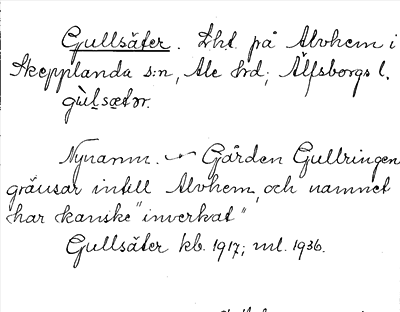 Gullsäter. Lht på Alvhem i
Skepplanda s:n, Ale hd; Älfsborgs l.
gùl̥sætər.
Nynamn. – Gården Gullringen
gränsar intill Alvhem, och namnet
har kanske "inverkat"
Gullsäter kb. 1917; ml. 1936.